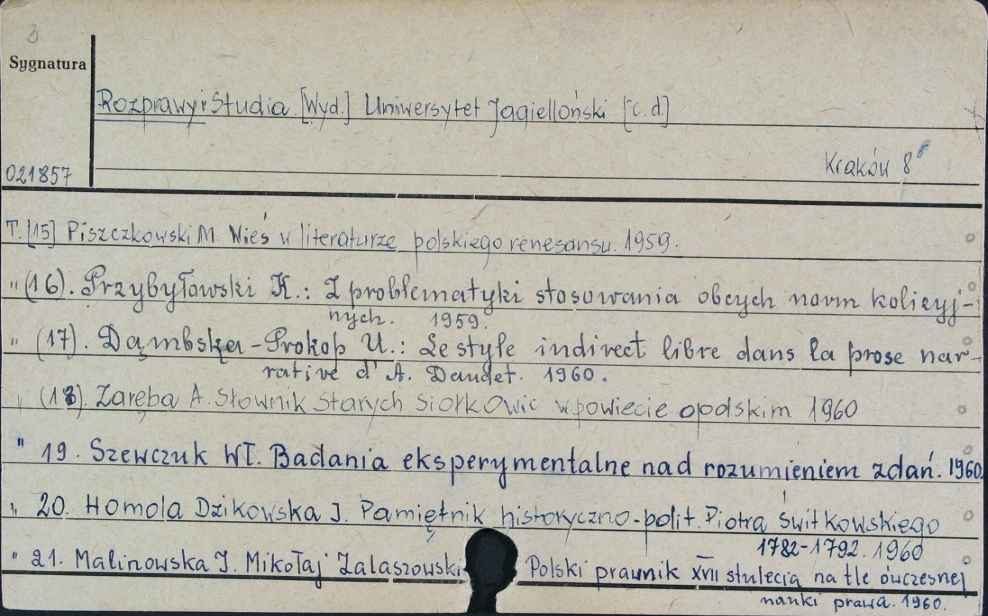 Sygnatura
Rozprawy i Studia. [Wyd.] Uniwersytet Jagielloński [c.d.]
Kraków 8°
021857
T. [15] Piszczkowski M. Wieś w literaturze polskiego renesansu. 1959.
" (16). Przybyłowski K.: Z problematyki stosowania obcych norm kolizyj-
nych. 1959.
" (17). Dąmbska-Prokop U.: Le style indirect libre dans la prose nar-
rative d'A. Daudet. 1960.
" (18). Zaręba A. Słownik Starych Siołkowic w powiecie opolskim 1960
" 19. Szewczuk Wł. Badania eksperymentalne nad rozumieniem zdań. 1960.
" 20. Homola Dzikowska J. Pamiętnik historyczno-polit. Piotra Świtkowskiego
1782-1792. 1960
" 21. Malinowska J. Mikołaj Zalaszowski Polski prawnik XVII stulecia na tle ówczesnej
nauki prawa. 1960.